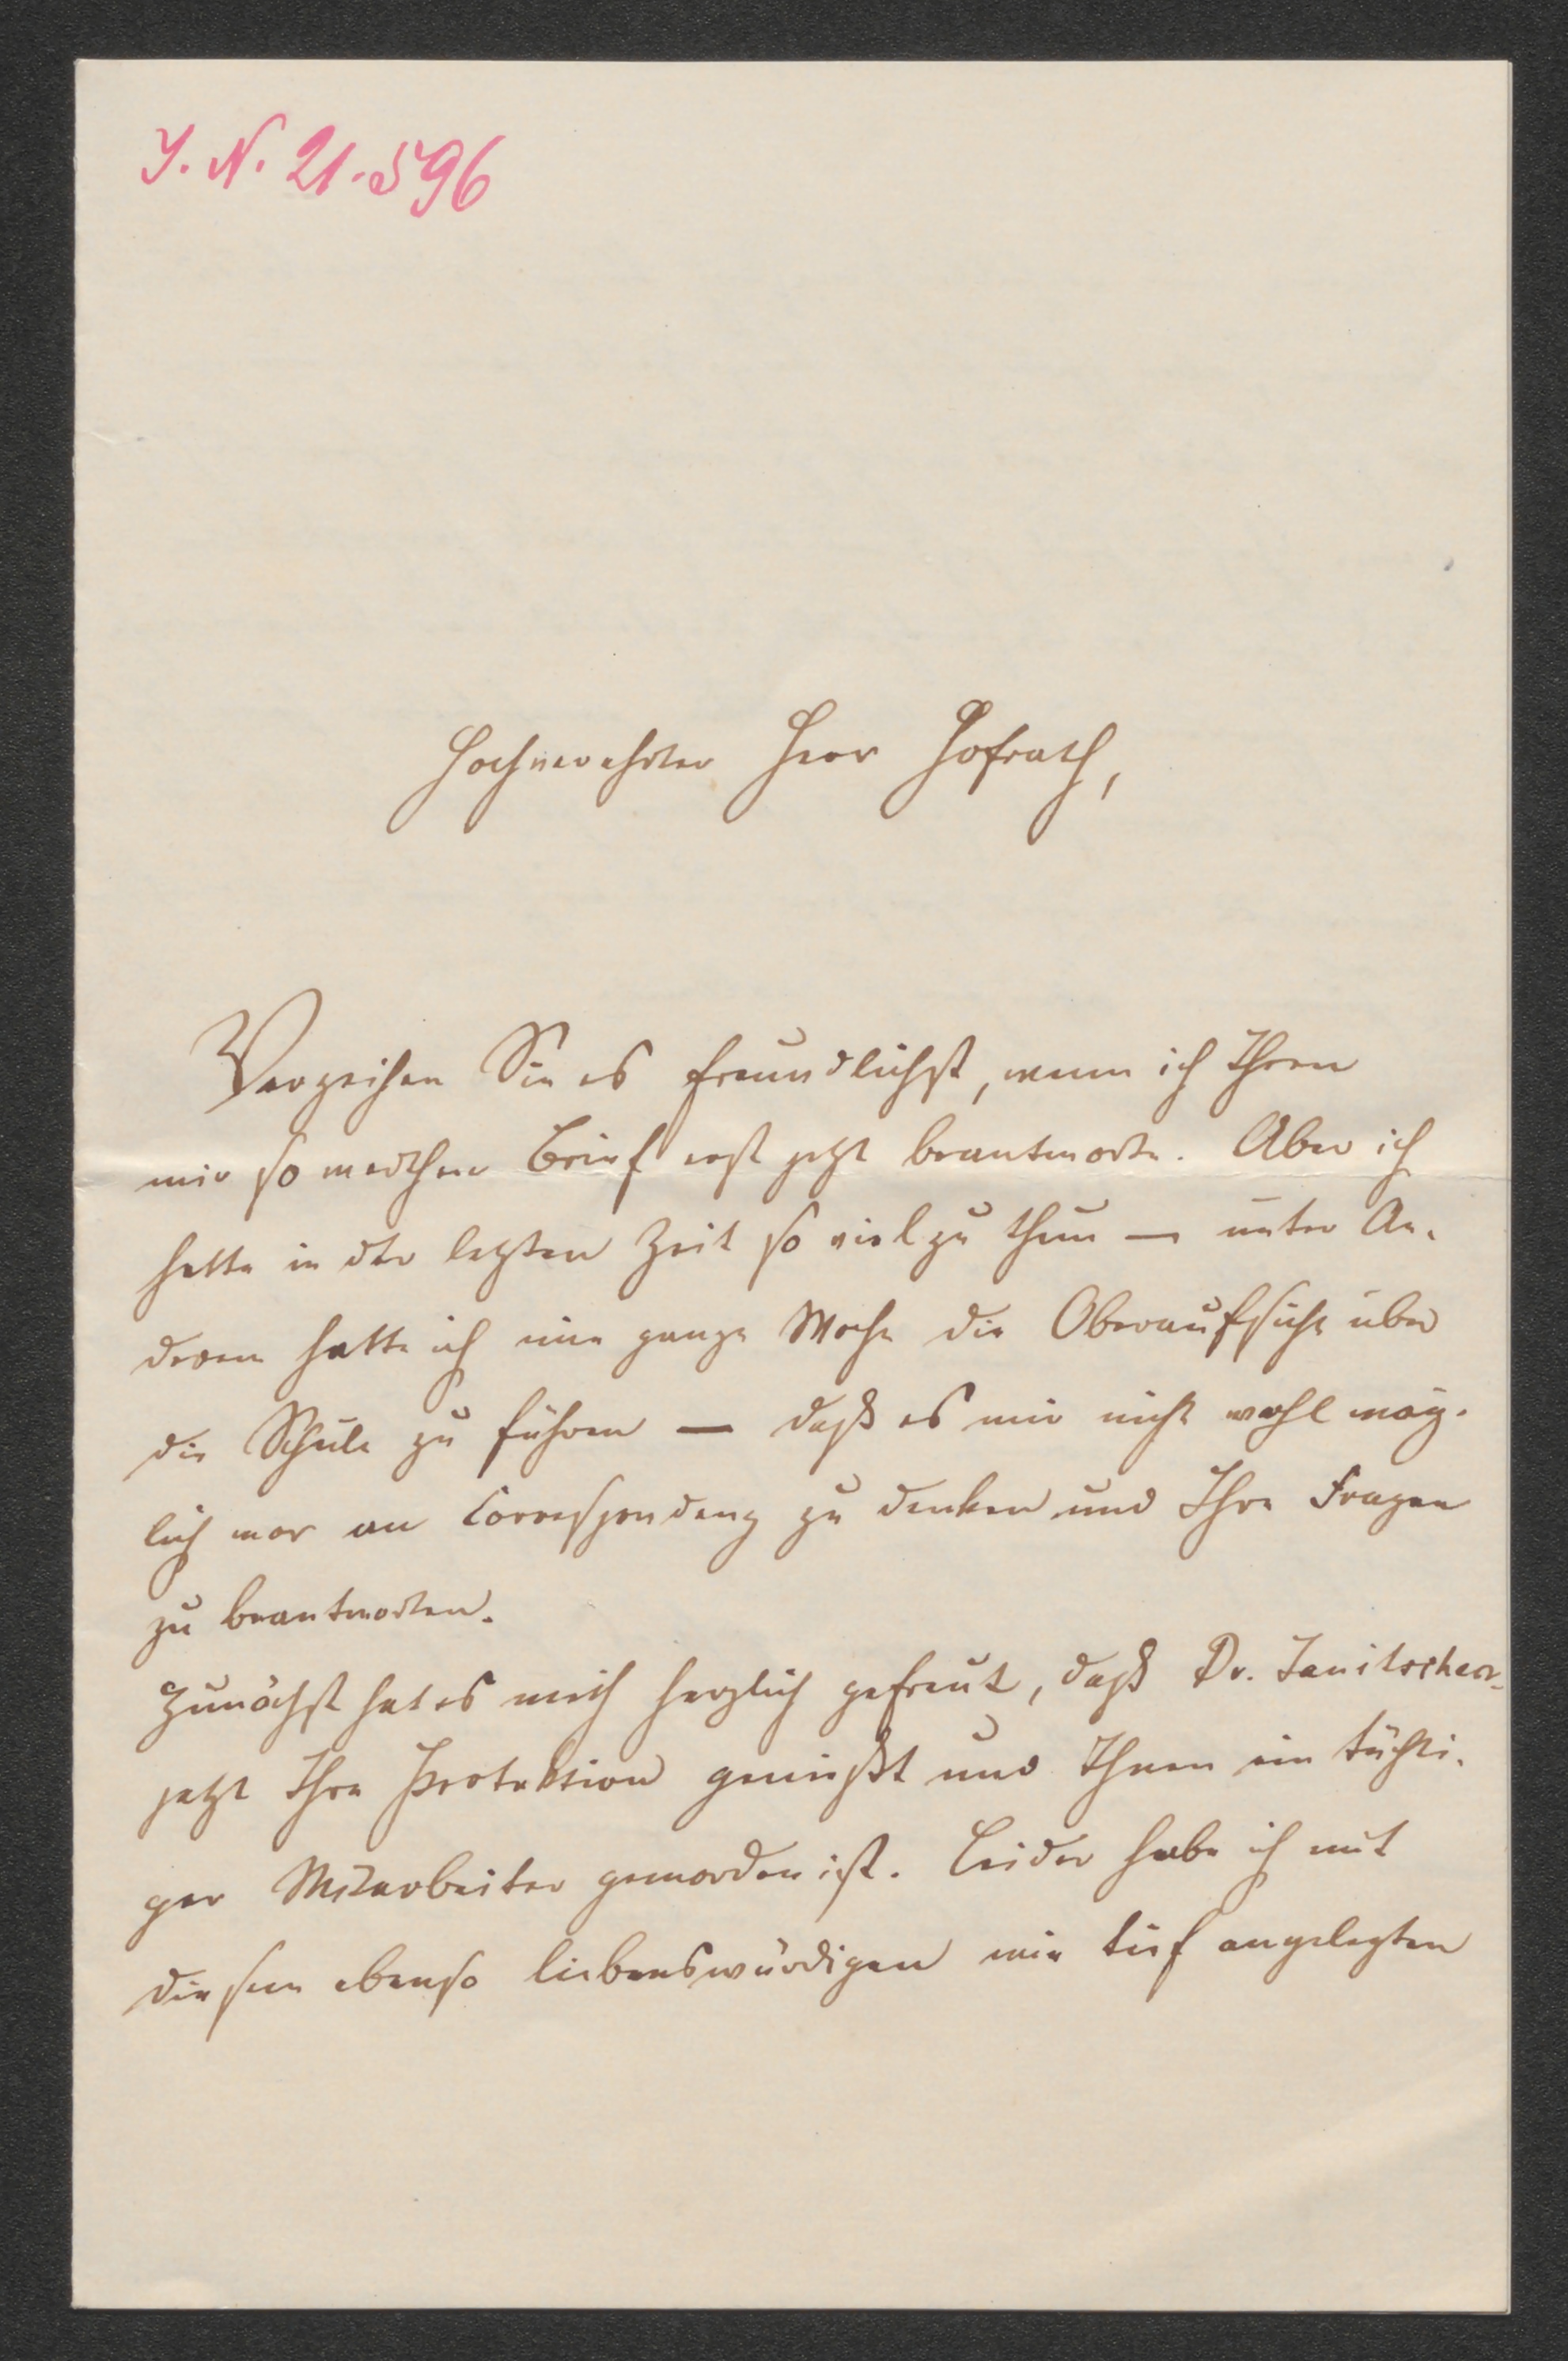 J. N. 21.596
Hochverehrter Herr Hofrath,
Verzeihen Sie es freundlichst, wenn ich Ihren
mir so werthen Brief erst jetzt beantworte. Aber ich
hatte in der letzten Zeit so viel zu thun — unter An-
derem hatte ich eine ganze Woche die Oberaufsicht über
die Schule zu führen — daß es mir nicht wohl mög-
lich war an Correspondenz zu denken und Ihre Fragen
zu beantworten.
Zunächst hat es mich herzlich gefreut, daß Dr. Janitschek
jetzt Ihre Protektion genießt und Ihnen ein tüchti-
ger Mitarbeiter geworden ist. Leider habe ich mit
diesem ebenso liebenswürdigen wie tief angelegten